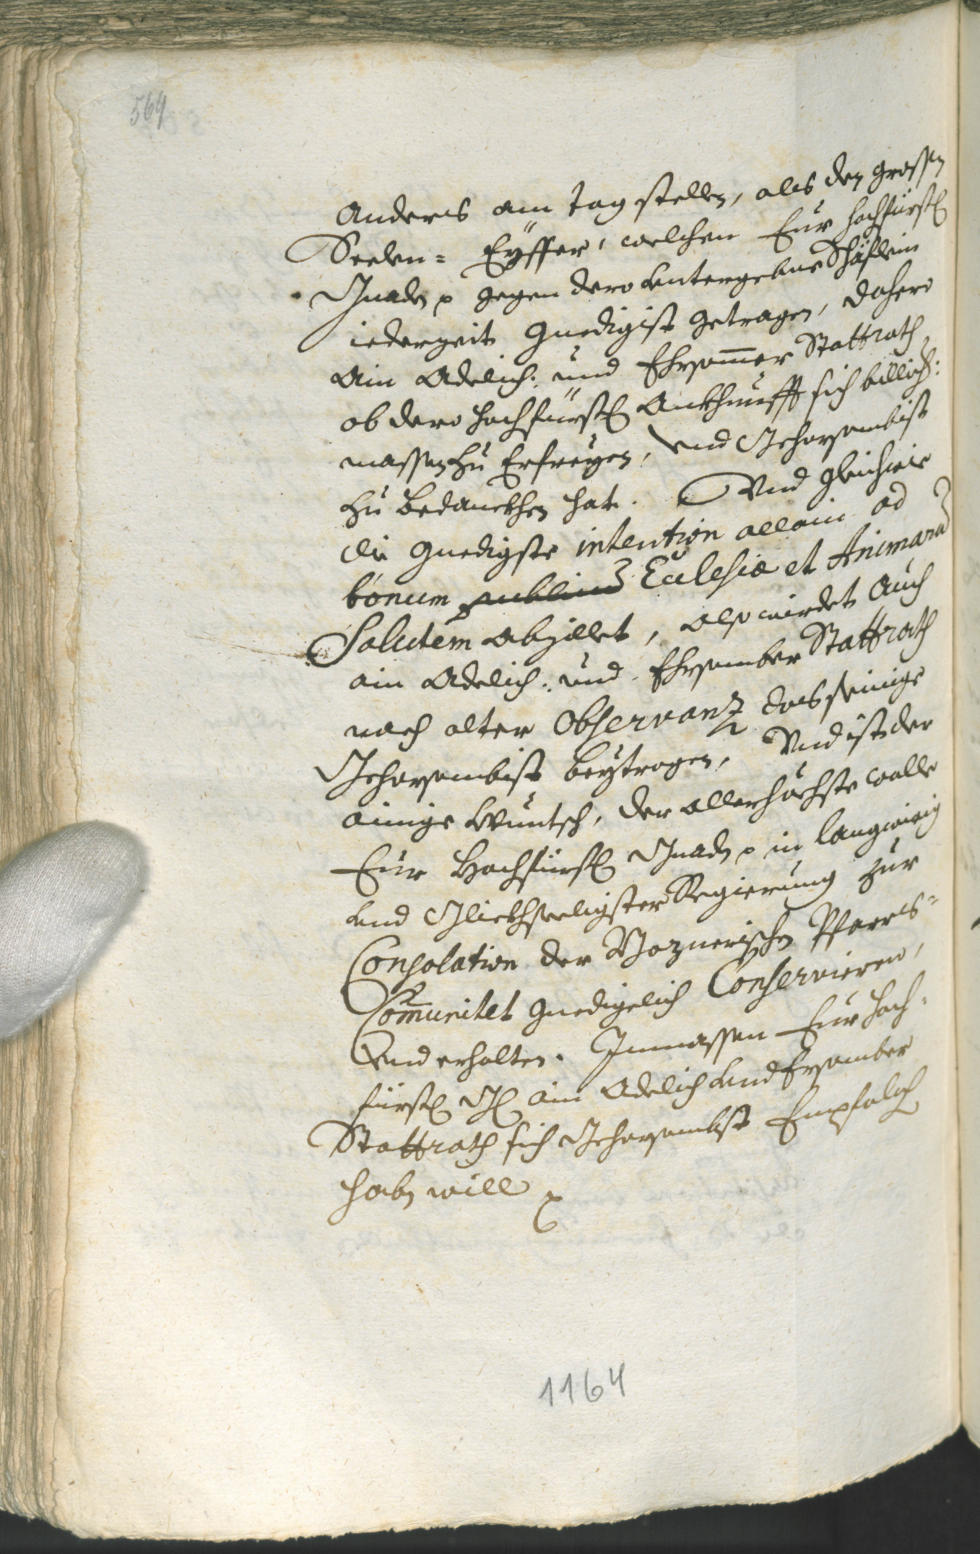 564
Anders am tag stellen, als den grossen
Seelen= Eÿffer, welchen Eur hochfürstl
Gnaden p gegen dero Untergebne Schäflein
iederzeit gnedigist getragen, dahero
Ain Adelich: und Ehrsammer Stattrath
ob dero hochfürstl Ankhunfft sich billich:
massen zu Erfreyen, und Gehorsambist
zu bedanckhen hat. Und gleichwie
die gnedigste intention allain ad
bonum publicum Ecclesiæ et Animarum
Salutem abzillet, also wirdet auch
ain Adelich: und Ehrsamber Stattrath
nach alter Observanz das seinige
Gehorsambist beytragen, Und ist der
ainige Wuntsch, der allerhöchste wolle
Eur Hochfürstl Gnaden p in langwirig
und Glickhseeligster Regierung zur
Consolation der Boznerischen Pfarrs=
Communitet gnedigelich Conservieren,
Und erhalten. Inmassen Eur hoch=
fürstl Gl ain Adelich und Ehrsamber
Stattrath sich Gehorsambst Empfolch
haben will p
1164